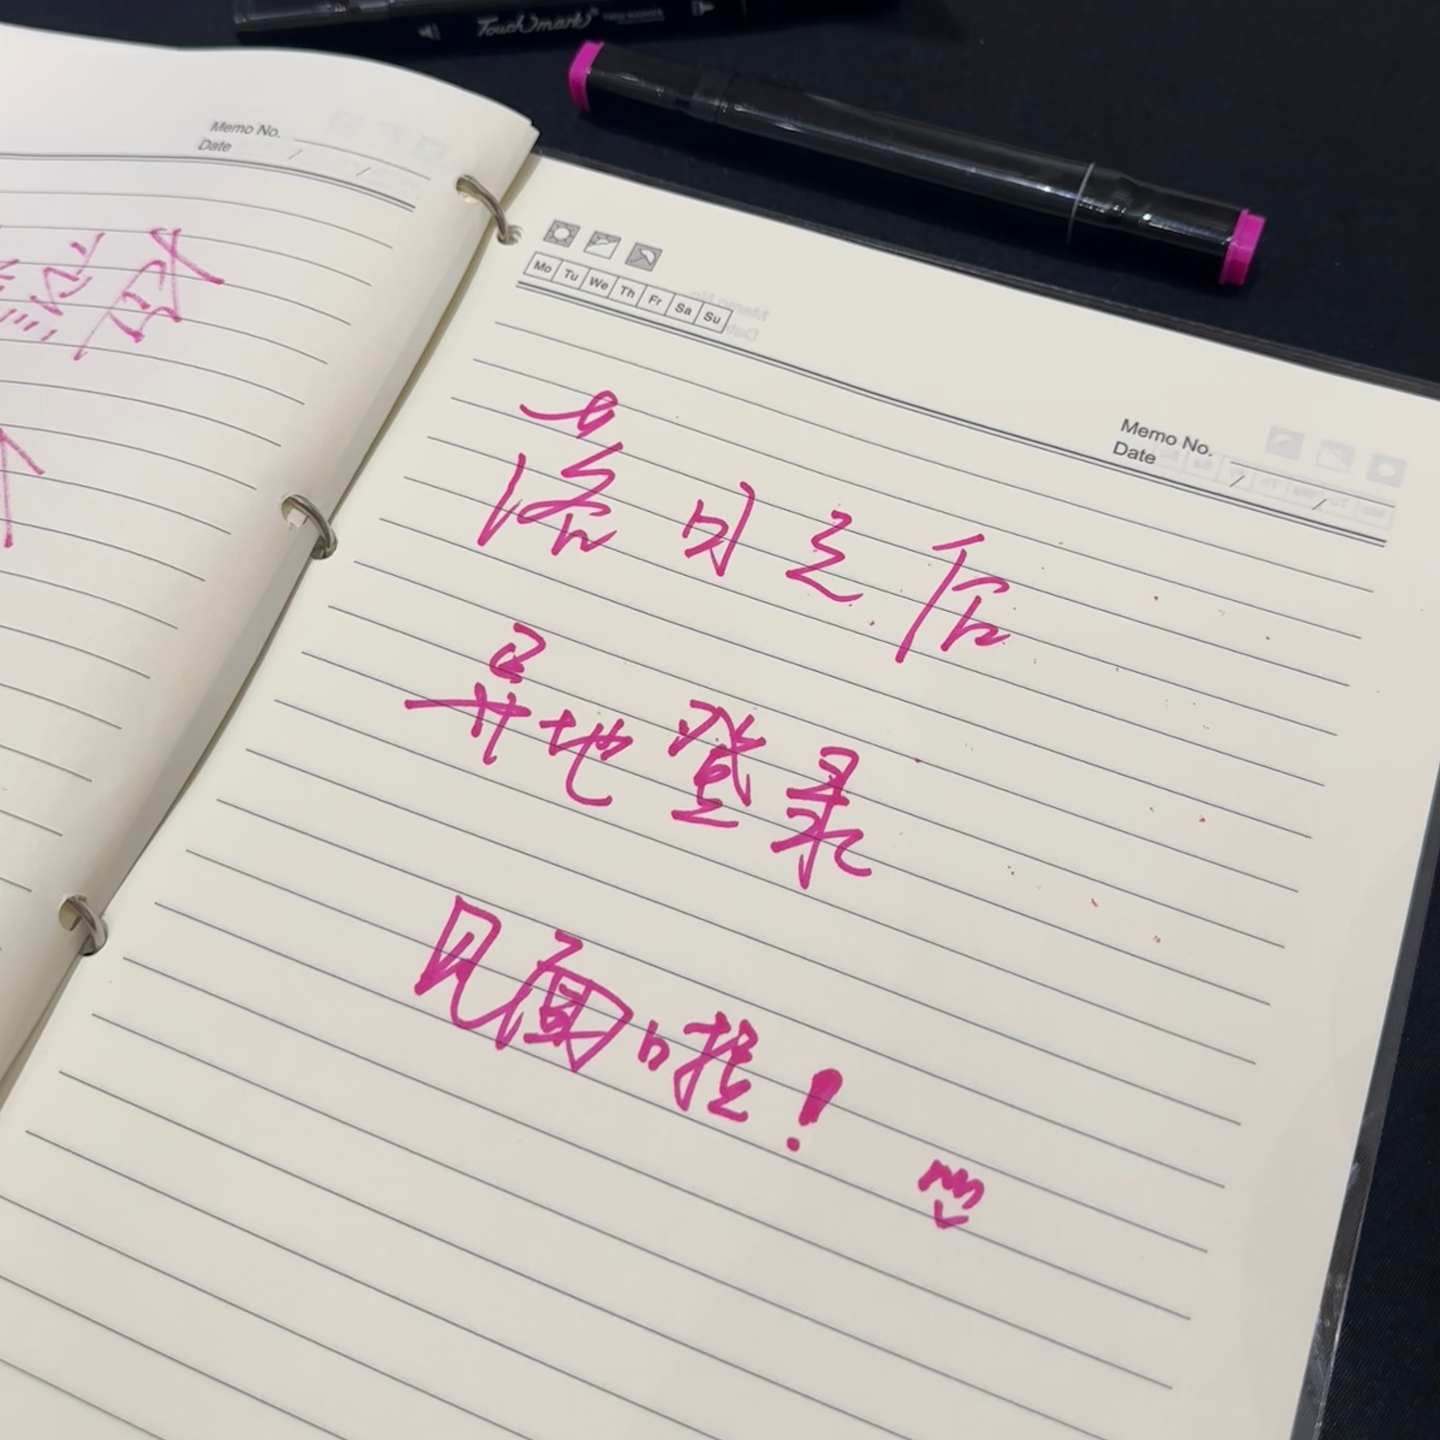 Touchmark
Memo No.
Date / /
Mo Tu We Th Fr Sa Su
Memo No.
Date / /
落日之后
异地登录
见面啦！